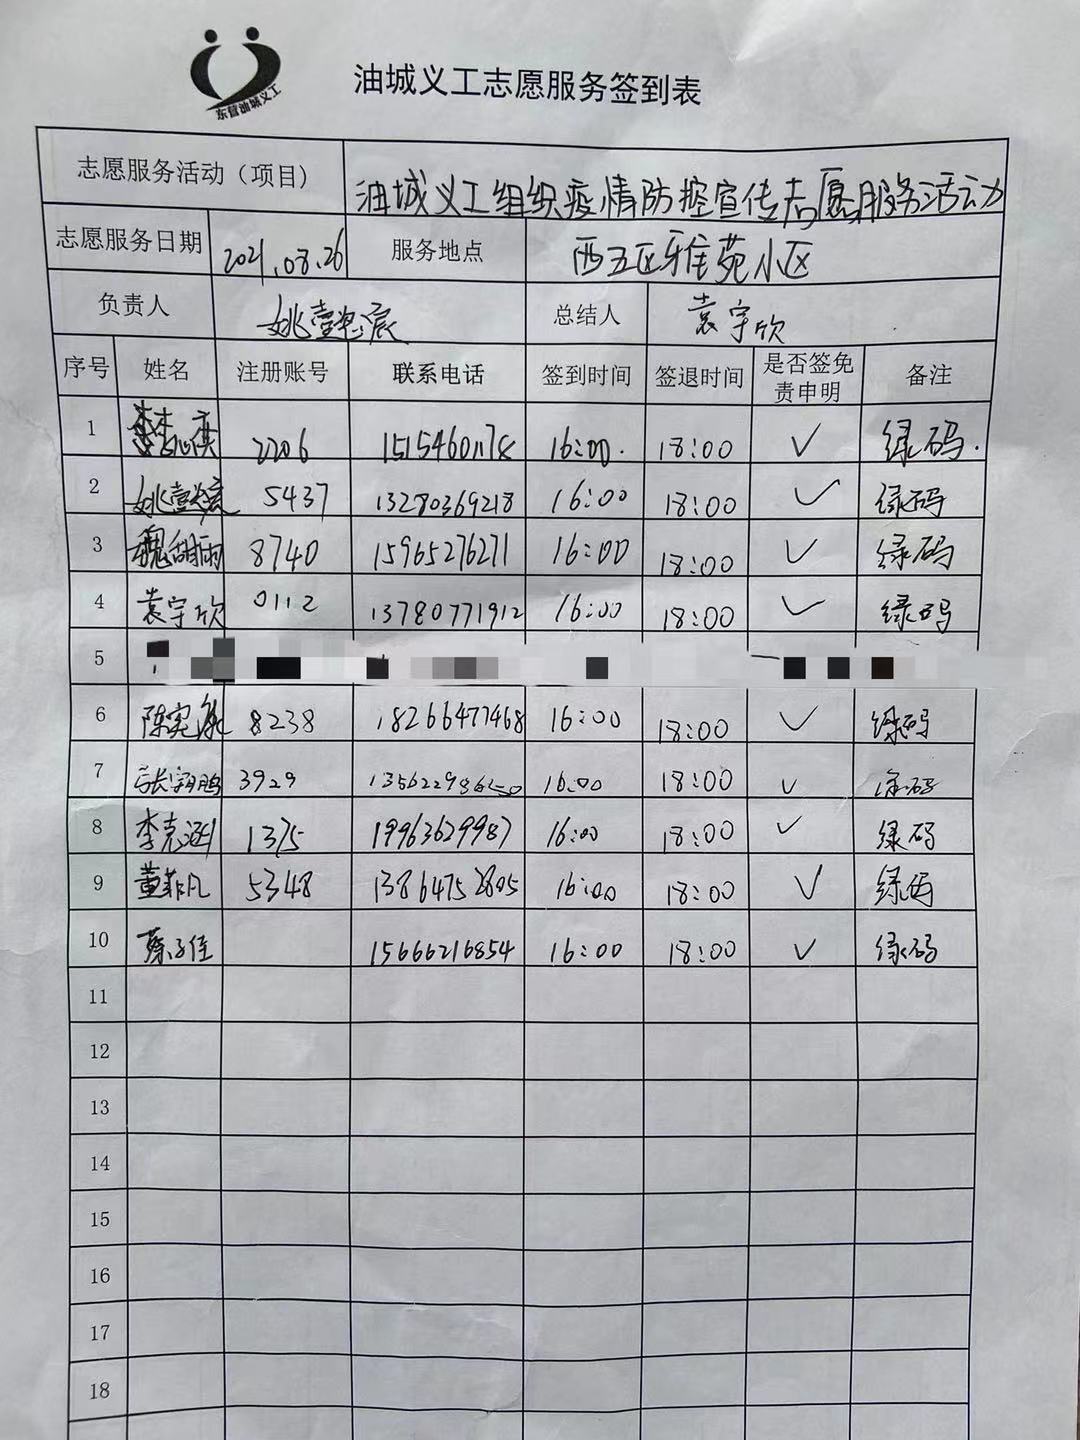 东营油城义工
油城义工志愿服务签到表
志愿服务活动（项目） 油城义工组织疫情防控宣传志愿服务活动
志愿服务日期 2021.08.26 服务地点 西五区雅苑小区
负责人 姚壹宸 总结人 袁宇欣
序号 姓名 注册账号 联系电话 签到时间 签退时间 是否签免责申明 备注
1 2206 16:00. 18:00 ✓ 绿码.
2 5437 13280369218 16:00 18:00 ✓ 绿码
3 8740 15965276271 16:00 18:00 ✓ 绿码
4 袁宇欣 0112 13780771912 16:00 18:00 ✓ 绿码
5
6 8238 18266477468 16:00 18:00 ✓ 绿码
7 张翔鹏 3929 16:00 18:00 ✓ 绿码
8 李克涵 1375 19963629987 16:00 18:00 ✓ 绿码
9 董菲凡 5348 13864752805 16:00 18:00 ✓ 绿码
10 蔡子佳 15666216854 16:00 18:00 ✓ 绿码
11
12
13
14
15
16
17
18